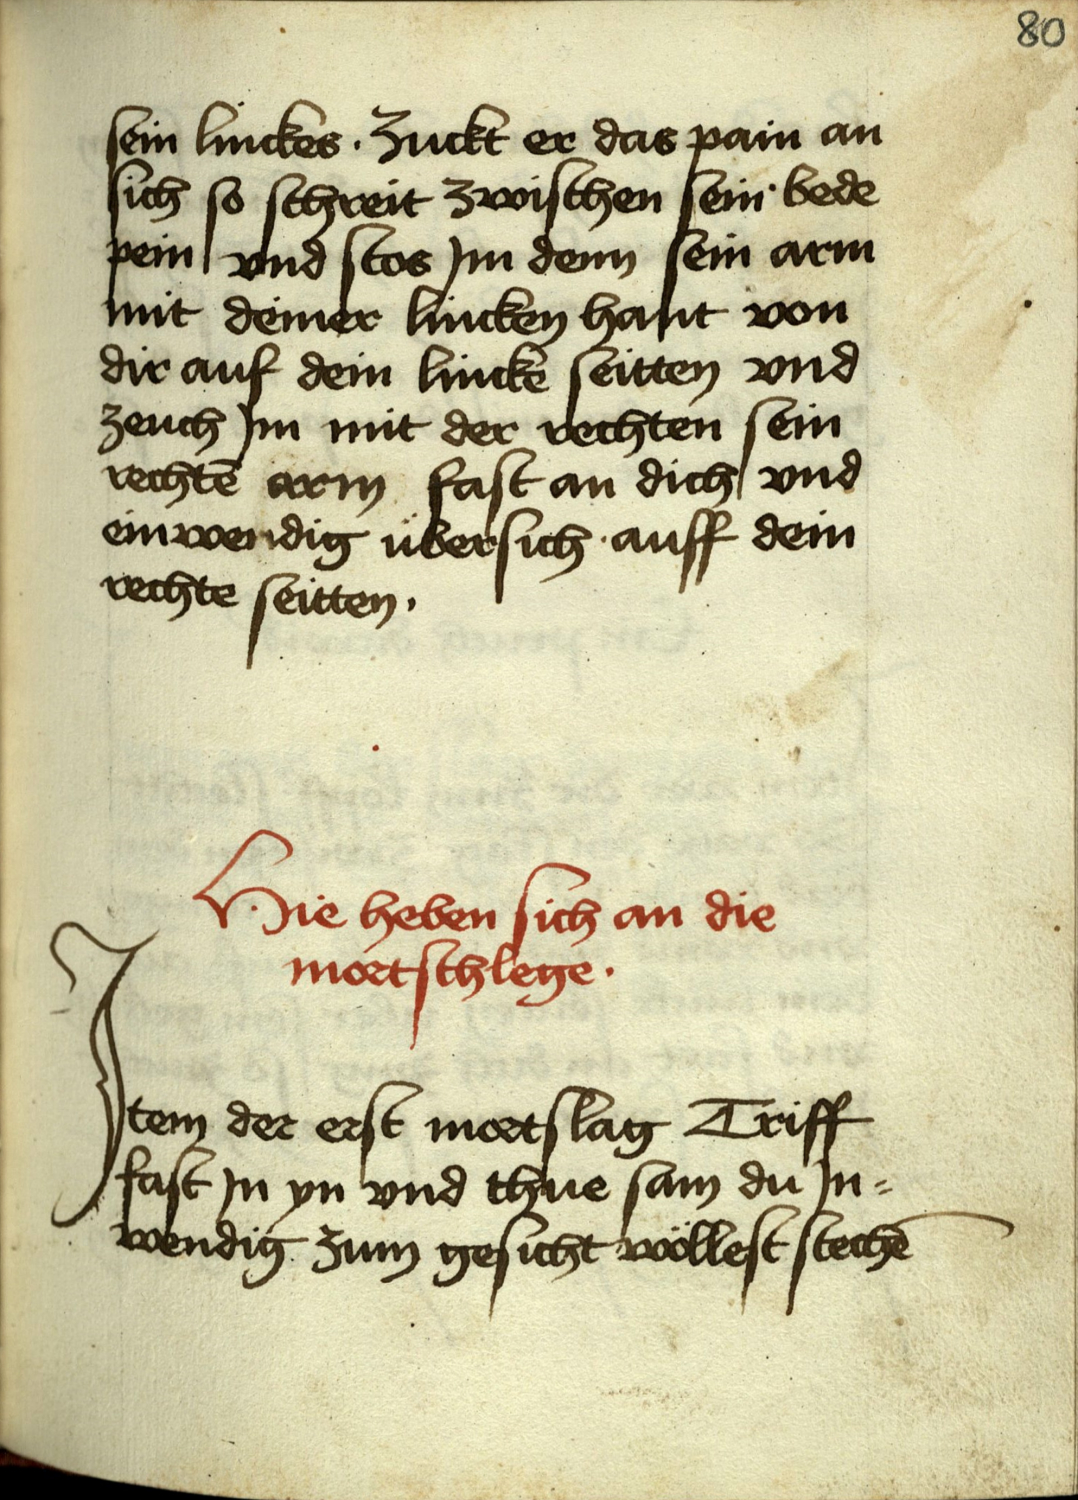 80
sein linckes. Zuckt er das pain an
sich so schreit zwischen sein bede
pein vnd stos Jm denn sein arm
mit deiner lincken hant von
dir auf dein lincke seitten vnd
zeuch Jm mit der rechten sein
rechtē arm fast an dich vnd
einwendig übersich auff dein
rechte seitten.
Hie heben sich an die
mortschlege.
Jtem der erst mortslag Triff
fast Jn yn vnd thue sam du Jn=
wendig zum gesicht wöllest stechē